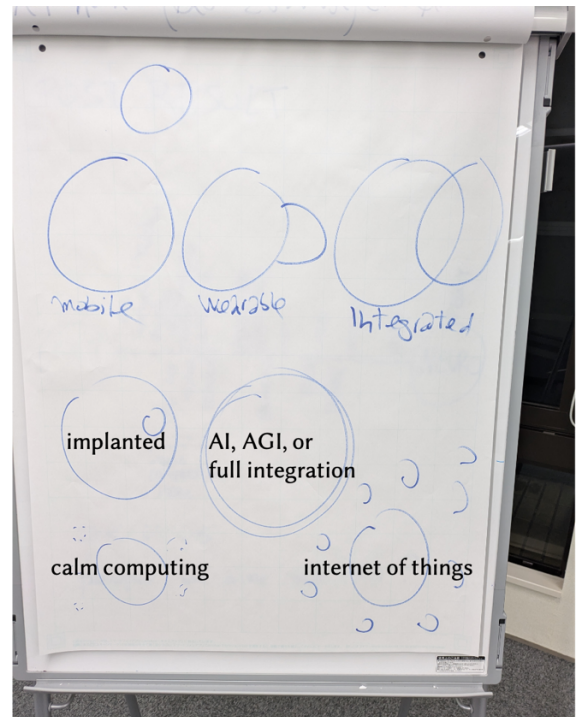 mobile
wearable
Integrated
implanted
AI, AGI, or
full integration
calm computing
internet of things